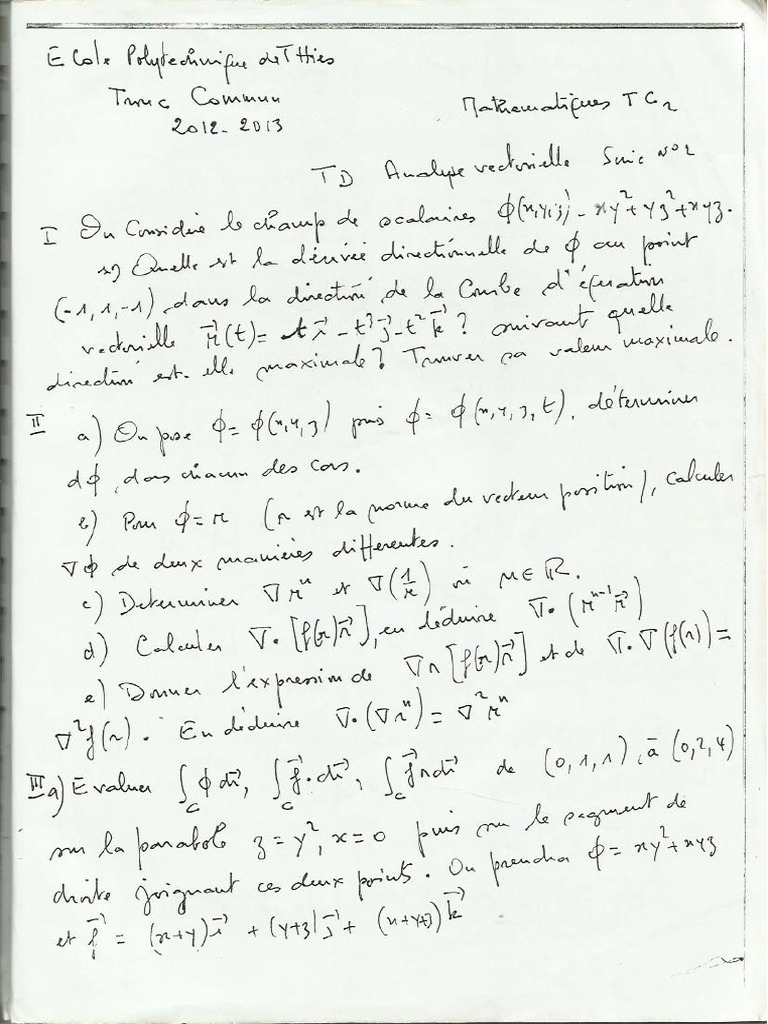 Ecole Polytechnique de Thies
Tronc Commun
2012-2013
Mathematiques TC2
TD Analyse vectorielle Serie N°2
I On Considère le champ de scalaires ϕ(x,y,z) = xy²+yz²+xyz.
1) Quelle est la dérivée directionnelle de ϕ au point
(-1,1,-1), dans la direction de la Courbe d'équation
vectorielle r⃗(t)= t i⃗ - t³ j⃗ - t² k⃗ ? suivant quelle
direction est-elle maximale? Trouver sa valeur maximale.
II a) On pose ϕ = ϕ(x,y,z) puis ϕ = ϕ(x,y,z,t), déterminer
dϕ, dans chacun des cas.
b) Pour ϕ = r (r est la norme du vecteur position), calculer
∇ϕ de deux manières differentes.
c) Determiner ∇rⁿ et ∇(1/r) où n∈ℝ.
d) Calculer ∇•[f(r)r⃗], en déduire ∇•(rⁿ⁻¹r⃗)
e) Donner l'expression de ∇∧[f(r)r⃗] et de ∇•∇(f(r)) =
∇²f(r). En déduire ∇•(∇rⁿ) = ∇²rⁿ
III a) Evaluer ∫_C ϕ dr⃗, ∫_C f⃗•dr⃗, ∫_C f⃗∧dr⃗ de (0,1,1), à (0,2,4)
sur la parabole z=y², x=0 puis sur le segment de
droite joignant ces deux points. On prendra ϕ = xy²+xyz
et f⃗ = (x+y)i⃗ + (y+z)j⃗ + (x+y+z)k⃗